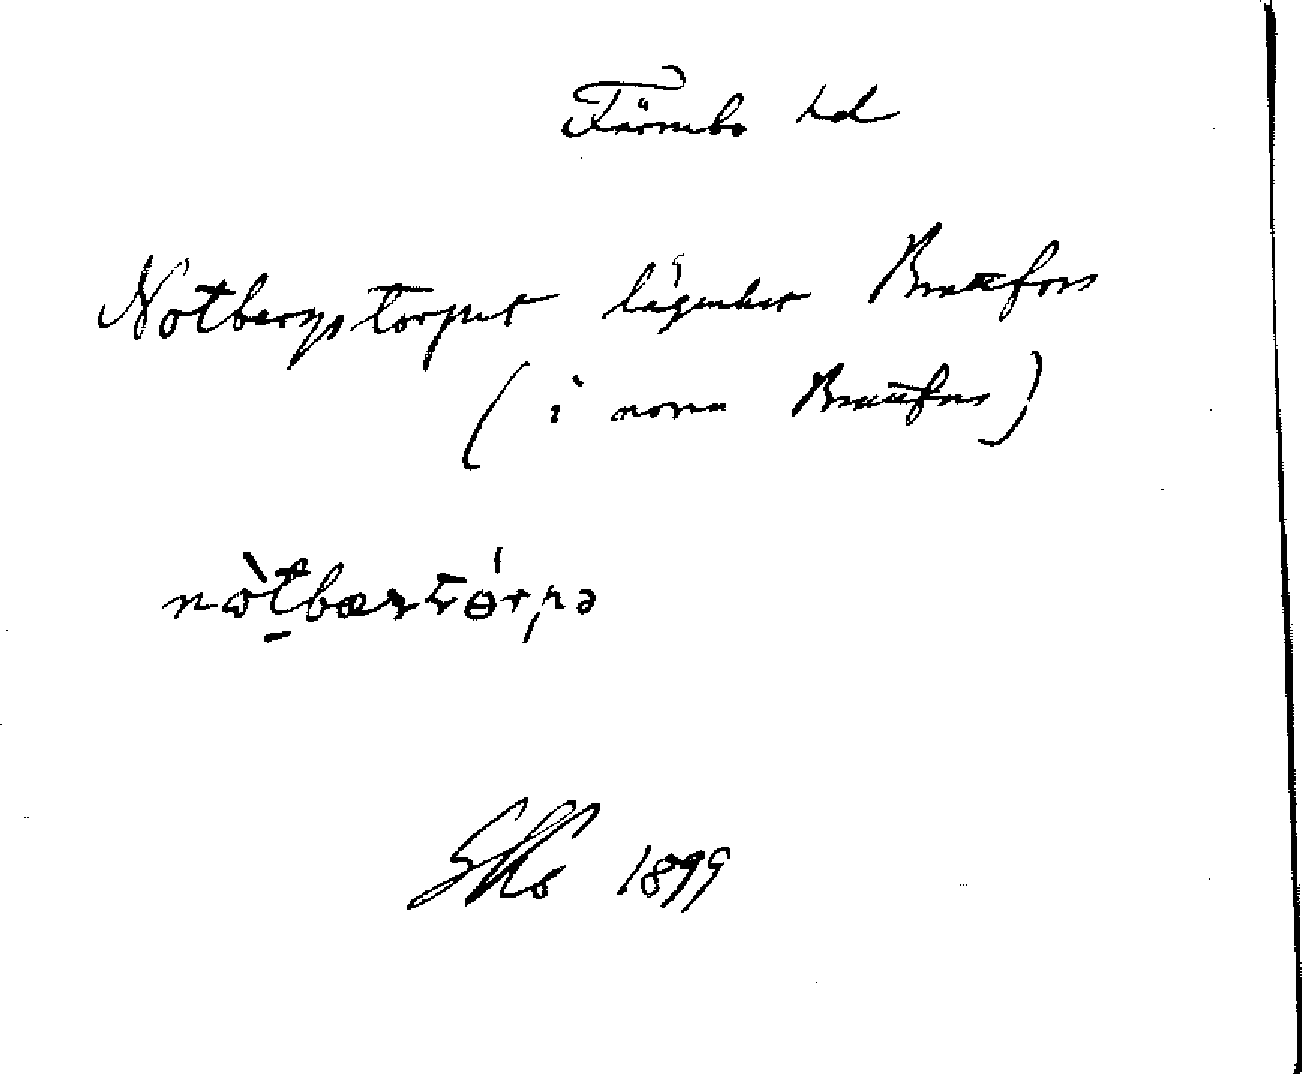 Färnebo hd
Notbergstorpet lägenhet Brattfors
( i norra Brattfors )
nòtbærstórpə
SKs 1899